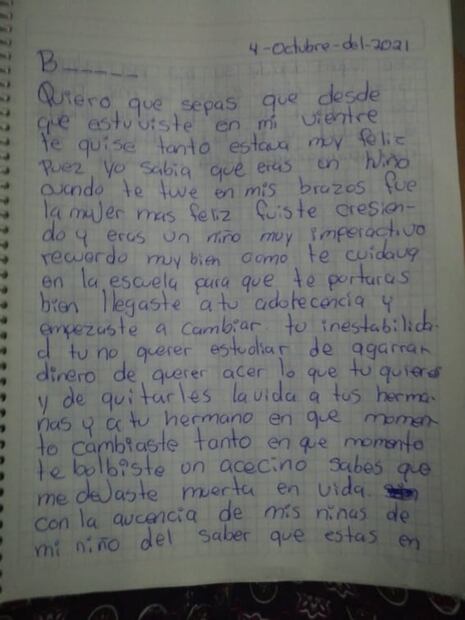 4-octubre-del-2021
B_____
Quiero que sepas que desde
que estuviste en mi vientre
te quise tanto estava muy feliz
puez yo sabia que eras un niño
cuando te tuve en mis brazos fue
la mujer mas feliz fuiste cresien-
do y eras un niño muy imperactivo
recuerdo muy bien como te cuidava
en la escuela para que te portaras
bien llegaste a tu adolecencia y
empezaste a cambiar tu inestabilida-
d tu no querer estudiar de agarrar
dinero de querer acer lo que tu quieres
y de quitarles la vida a tus herma-
nas y a tu hermano en que momen-
to cambiaste tanto en que momento
te bolbiste un acecino sabes que
me dejaste muerta en vida
con la aucencia de mis niñas de
mi niño del saber que estas en